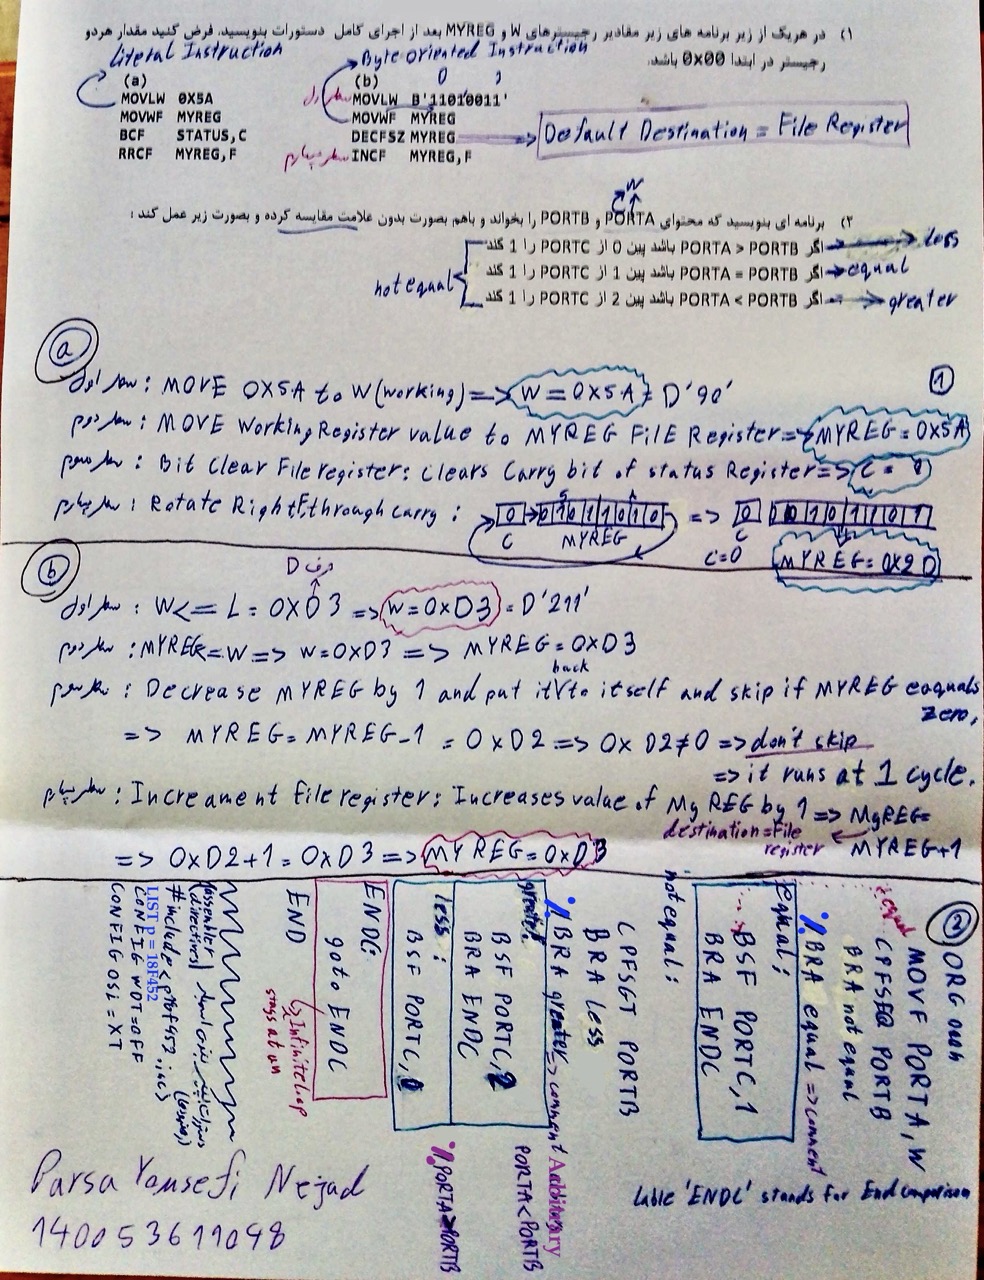 ۱) در هریک از زیر برنامه های زیر مقادیر رجیسترهای W و MYREG بعد از اجرای کامل دستورات بنویسید. فرض کنید مقدار هردو
رجیستر در ابتدا 0x00 باشد.
Literal Instruction
Byte oriented Instruction
(a)
MOVLW 0X5A
MOVWF MYREG
BCF STATUS,C
RRCF MYREG,F
(b)
سطر اول
MOVLW B'11010011'
MOVWF MYREG
DECFSZ MYREG
سطر چهارم
INCF MYREG,F
Default Destination = File Register
W
۲) برنامه ای بنویسید که محتوای PORTA و PORTB را بخواند و باهم بصورت بدون علامت مقایسه کرده و بصورت زیر عمل کند :
اگر PORTA > PORTB باشد پین 0 از PORTC را 1 کند
less
اگر PORTA = PORTB باشد پین 1 از PORTC را 1 کند
equal
اگر PORTA < PORTB باشد پین 2 از PORTC را 1 کند
greater
not equal
a
1
سطر اول : MOVE 0X5A to W(working) => W = 0X5A = D'90'
سطر دوم : MOVE Working Register value to MYREG File Register => MYREG = 0X5A
سطر سوم : Bit Clear File register: Clears Carry bit of status Register => C = 0
سطر چهارم : Rotate Right F through carry : 0 → 01011010 => 0 00101101
5 A
C MYREG
C
C=0
MYREG = 0X2D
b
حرف D
سطر اول : W <= L = 0XD3 => W = 0xD3 = D'211'
سطر دوم : MYREG <= W => W = 0XD3 => MYREG = 0XD3
سطر سوم : Decrease MYREG by 1 and put it back to itself and skip if MYREG eaquals
zero,
=> MYREG = MYREG - 1 = 0XD2 => 0X D2≠0 => don't skip
=> it runs at 1 cycle.
سطر چهارم : Increament file register: Increases value of MyREG by 1 => MyREG =
MYREG+1
destination = File
register
=> 0XD2+1 = 0XD3 => MYREG = 0XD3
2
ORG 00h
MOVF PORTA, W
CPFSEQ PORTB
BRA not equal
% BRA equal => comment
equal:
BSF PORTC, 1
BRA ENDC
not equal :
CPFSGT PORTB
BRA less
% BRA greater => comment Additionary
greater:
PORTA<PORTB
BSF PORTC, 2
BRA ENDC
less :
BSF PORTC, 0
% PORTA>PORTB
ENDC:
goto ENDC
Infinite loop
stays at un
END
(assembler
directives)
#include <p18f452.inc>
LIST p = 18F452
CONFIG WDT = OFF
CONFIG OSC = XT
Lable 'ENDC' stands for End comparison
Parsa Yousefi Nejad
140053611048